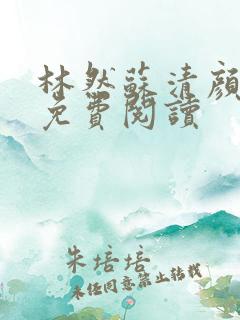 林然蘇清顏
免費閱讀
朱培培
未經同意禁止轉載